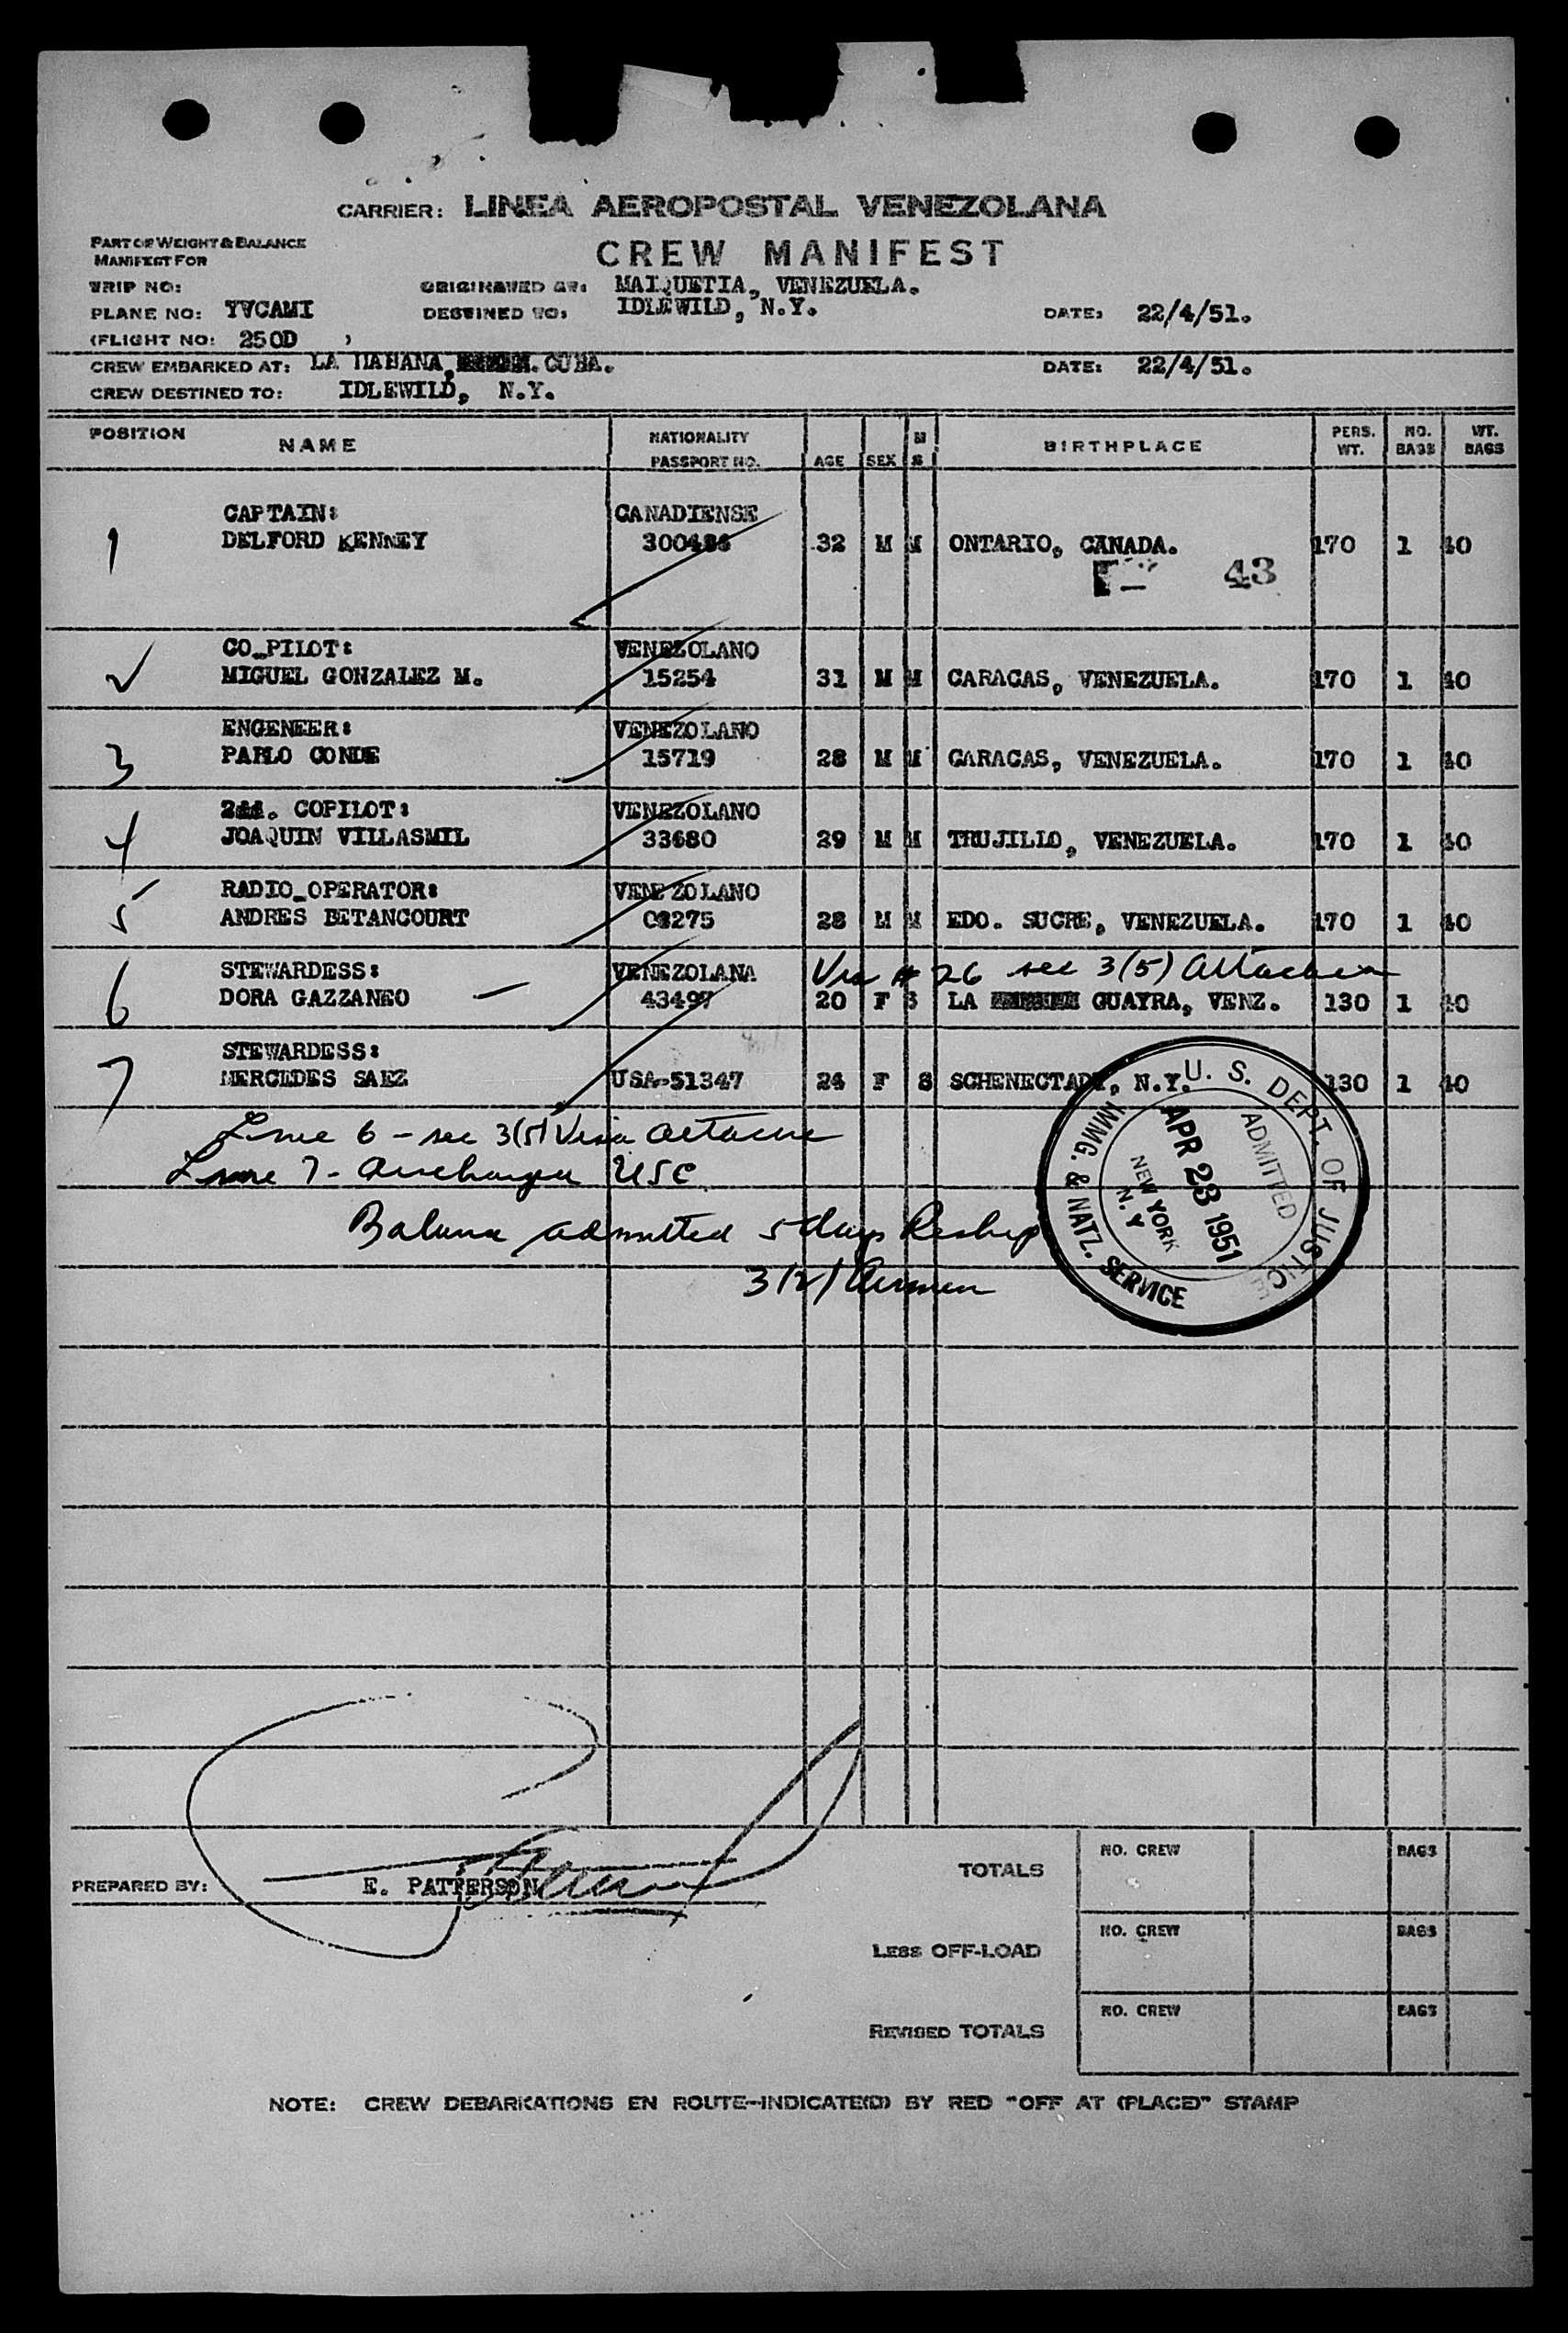 CARRIER: LINEA AEROPOSTAL VENEZOLANA
PART OF WEIGHT & BALANCE
MANIFEST FOR
CREW MANIFEST
TRIP NO: ORIGINATED AT: MAIQUETIA, VENEZUELA.
PLANE NO: YVCAMI DESTINED TO: IDLEWILD, N.Y. DATE: 22/4/51.
(FLIGHT NO: 250D )
CREW EMBARKED AT: LA HABANA, CUBA. DATE: 22/4/51.
CREW DESTINED TO: IDLEWILD, N.Y.
POSITION NAME NATIONALITY PASSPORT NO. AGE SEX M S BIRTHPLACE PERS. WT. NO. BAGS WT. BAGS
CAPTAIN: CANADIENSE
1 DELFORD KENNEY 32 M M ONTARIO, CANADA. 170 1 40
43
CO_PILOT: VENEZOLANO
MIGUEL GONZALEZ M. 15254 31 M M CARACAS, VENEZUELA. 170 1 40
ENGENEER: VENEZOLANO
3 PABLO CONDE 15719 28 M M CARACAS, VENEZUELA. 170 1 40
COPILOT: VENEZOLANO
4 JOAQUIN VILLASMIL 33680 29 M M TRUJILLO, VENEZUELA. 170 1 40
RADIO_OPERATOR: VENEZOLANO
5 ANDRES BETANCOURT 28 M M EDO. SUCRE, VENEZUELA. 170 1 40
STEWARDESS: VENEZOLANA # 26 sec 3(5) attached
6 DORA GAZZANEO 43497 20 F S LA GUAYRA, VENZ. 130 1 40
STEWARDESS:
7 MERCEDES SAEZ USA-51347 24 F S SCHENECTADY, N.Y. 130 1 40
Line 6 - sec 3(5) Visa attached
Line 7 - USC
Balance admitted 5 days Reship
3(2) Airmen
U. S. DEPT. OF JUSTICE
ADMITTED
APR 23 1951
NEW YORK
N. Y
IMMG. & NATZ. SERVICE
PREPARED BY: E. PATTERSON
TOTALS NO. CREW BAGS
LESS OFF-LOAD NO. CREW BAGS
REVISED TOTALS NO. CREW BAGS
NOTE: CREW DEBARKATIONS EN ROUTE—INDICATE(D) BY RED "OFF AT (PLACE)" STAMP